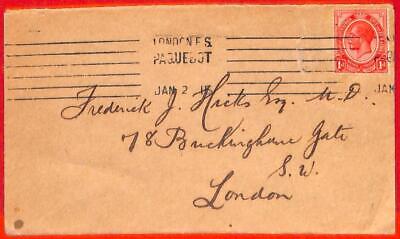 LONDON F.S.
PAQUEBOT
JAN 2
JAN
1D 1D
Frederick J. Hicks Esq. M.D.
78 Buckinghame Gate
S.W.
London